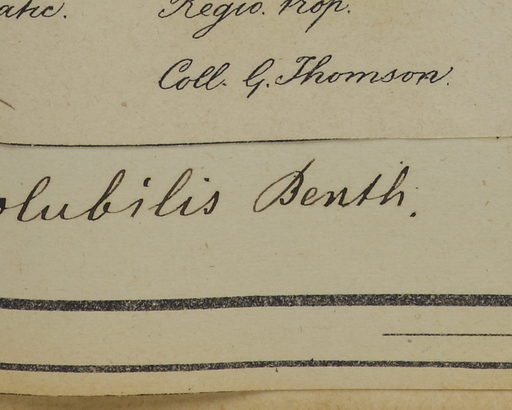 Regio. trop.
Coll. G. Thomson.
olubilis Benth.